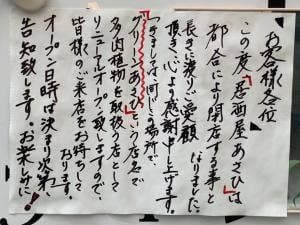 お客様各位
この度「居酒屋あさひ」は
都合により閉店する事と
なりました。
長きに渡りご愛顧
頂き、心より感謝申し上げます。
つきましては、同じ場所で
「グリーンあさひ」という店名で
多肉植物を取扱う店として
リニューアルオープン致しますので、
皆様のご来店をお待ちして
おります。
オープン日時は決まり次第、
告知致します。お楽しみに!